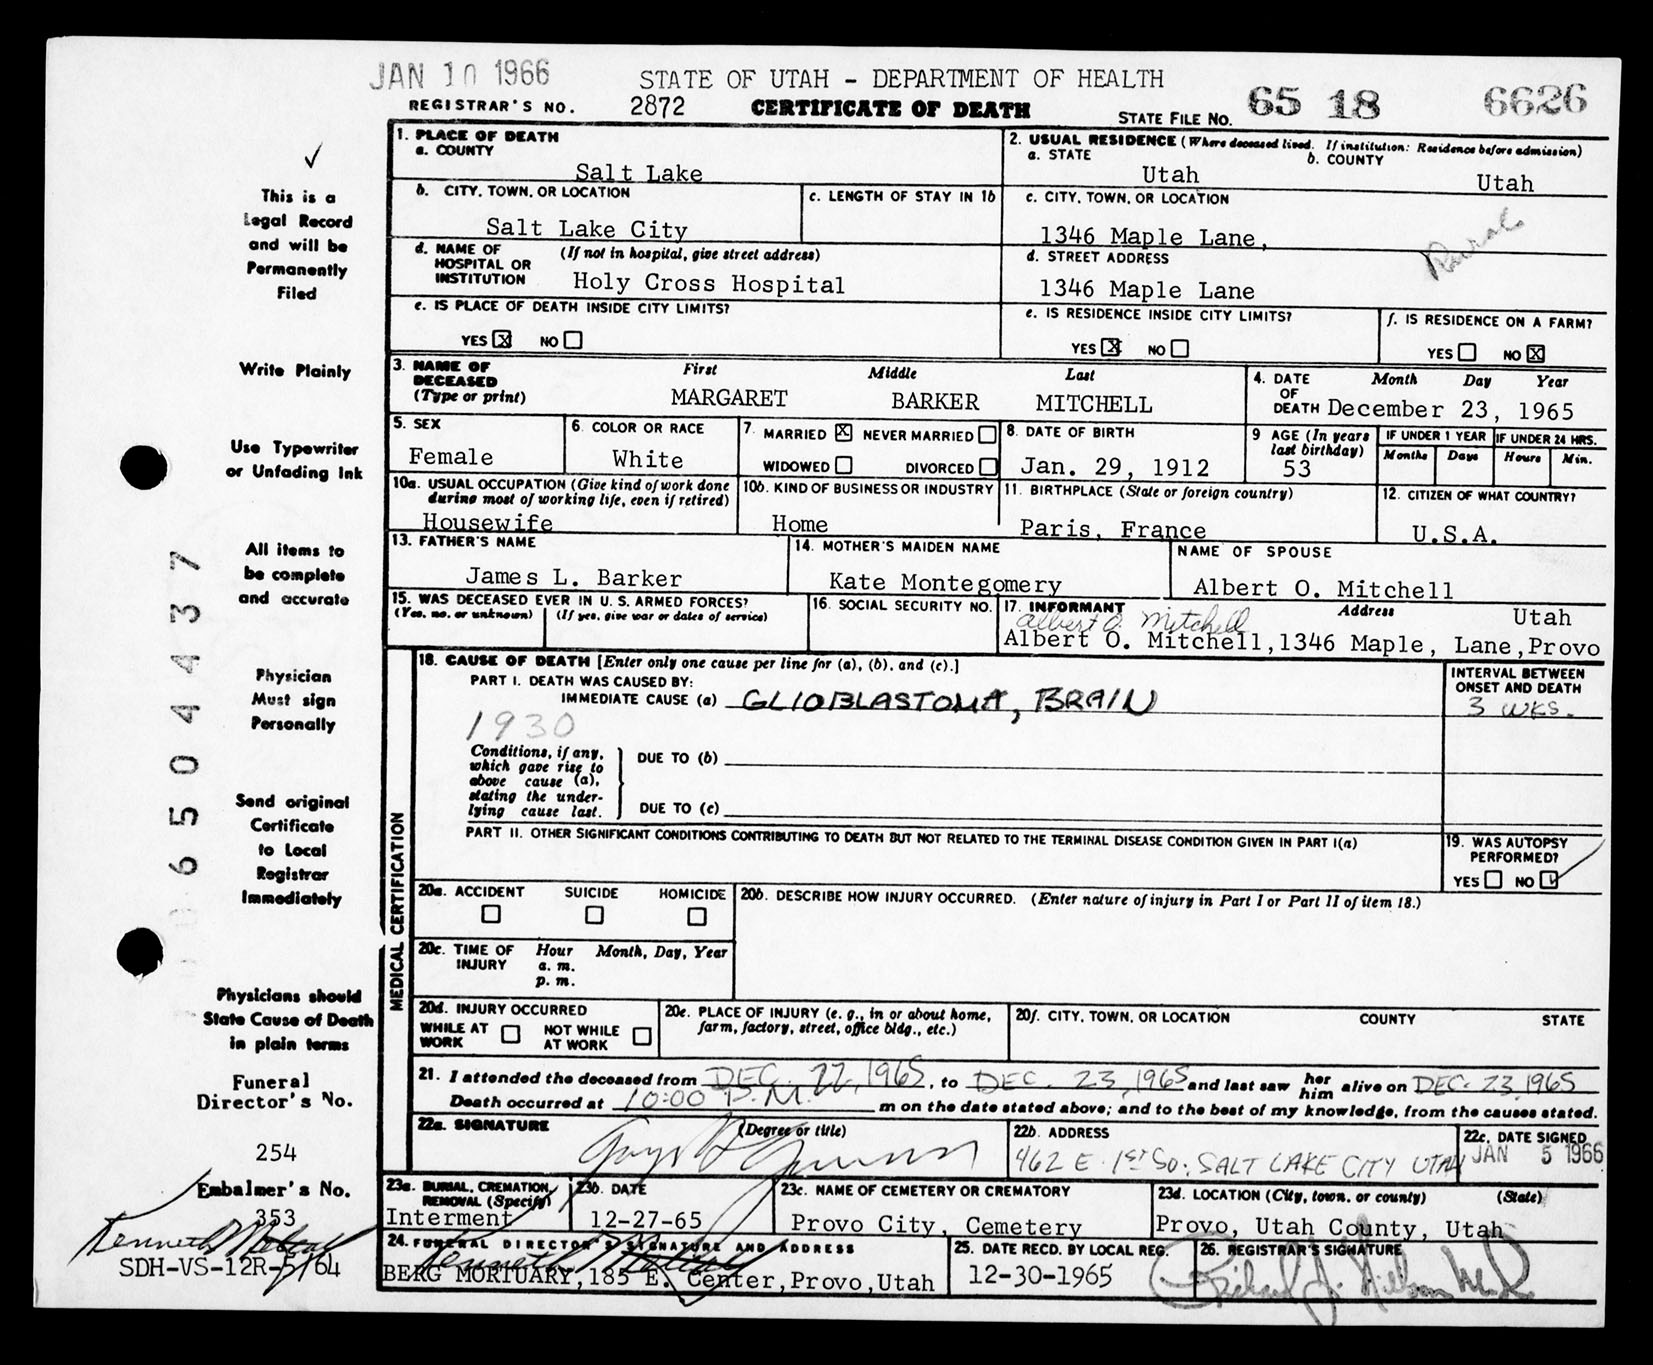 JAN 10 1966
STATE OF UTAH - DEPARTMENT OF HEALTH
REGISTRAR'S NO. 2872 CERTIFICATE OF DEATH STATE FILE NO. 65 18 6626
This is a
Legal Record
and will be
Permanently
Filed
Write Plainly
Use Typewriter
or Unfading Ink
All items to
be complete
and accurate
Physician
Must sign
Personally
Send original
Certificate
to Local
Registrar
Immediately
Physicians should
State Cause of Death
in plain terms
Funeral
Director's No.
254
Embalmer's No.
353
Kenneth Metcalf
SDH-VS-12R-5/64
6504437
1. PLACE OF DEATH
a. COUNTY
Salt Lake
2. USUAL RESIDENCE (Where deceased lived. If institution: Residence before admission)
a. STATE b. COUNTY
Utah Utah
b. CITY, TOWN, OR LOCATION c. LENGTH OF STAY IN 1b
Salt Lake City
c. CITY, TOWN, OR LOCATION
1346 Maple Lane, Rural
d. NAME OF HOSPITAL OR INSTITUTION (If not in hospital, give street address)
Holy Cross Hospital
d. STREET ADDRESS
1346 Maple Lane
e. IS PLACE OF DEATH INSIDE CITY LIMITS?
YES X NO
e. IS RESIDENCE INSIDE CITY LIMITS?
YES X NO
f. IS RESIDENCE ON A FARM?
YES NO X
3. NAME OF DECEASED (Type or print) First Middle Last
MARGARET BARKER MITCHELL
4. DATE OF DEATH Month Day Year
December 23, 1965
5. SEX
Female
6. COLOR OR RACE
White
7. MARRIED X NEVER MARRIED
WIDOWED DIVORCED
8. DATE OF BIRTH
Jan. 29, 1912
9 AGE (In years last birthday)
53
IF UNDER 1 YEAR IF UNDER 24 HRS.
Months Days Hours Min.
10a. USUAL OCCUPATION (Give kind of work done during most of working life, even if retired)
Housewife
10b. KIND OF BUSINESS OR INDUSTRY
Home
11. BIRTHPLACE (State or foreign country)
Paris, France
12. CITIZEN OF WHAT COUNTRY?
U.S.A.
13. FATHER'S NAME
James L. Barker
14. MOTHER'S MAIDEN NAME
Kate Montegomery
NAME OF SPOUSE
Albert O. Mitchell
15. WAS DECEASED EVER IN U. S. ARMED FORCES?
(Yes, no, or unknown) (If yes, give war or dates of service)
16. SOCIAL SECURITY NO.
17. INFORMANT Address Utah
Albert O. Mitchell
Albert O. Mitchell,1346 Maple, Lane,Provo
MEDICAL CERTIFICATION
18. CAUSE OF DEATH [Enter only one cause per line for (a), (b), and (c).]
PART I. DEATH WAS CAUSED BY:
IMMEDIATE CAUSE (a) GLIOBLASTOMA, BRAIN
INTERVAL BETWEEN ONSET AND DEATH
3 WKS.
1930
Conditions, if any, which gave rise to above cause (a), stating the underlying cause last.
DUE TO (b)
DUE TO (c)
PART II. OTHER SIGNIFICANT CONDITIONS CONTRIBUTING TO DEATH BUT NOT RELATED TO THE TERMINAL DISEASE CONDITION GIVEN IN PART I(a)
19. WAS AUTOPSY PERFORMED?
YES NO
20a. ACCIDENT SUICIDE HOMICIDE
20b. DESCRIBE HOW INJURY OCCURRED. (Enter nature of injury in Part I or Part II of item 18.)
20c. TIME OF INJURY Hour Month, Day, Year
a. m.
p. m.
20d. INJURY OCCURRED
WHILE AT WORK NOT WHILE AT WORK
20e. PLACE OF INJURY (e. g., in or about home, farm, factory, street, office bldg., etc.)
20f. CITY, TOWN, OR LOCATION COUNTY STATE
21. I attended the deceased from DEC. 22, 1965, to DEC. 23, 1965 and last saw her him alive on DEC. 23, 1965
Death occurred at 10:00 P.M. m on the date stated above; and to the best of my knowledge, from the causes stated.
22a. SIGNATURE (Degree or title)
22b. ADDRESS
462 E. 1st So. SALT LAKE CITY UTAH
22c. DATE SIGNED
JAN 5 1966
23a. BURIAL, CREMATION, REMOVAL (Specify)
Interment
23b. DATE
12-27-65
23c. NAME OF CEMETERY OR CREMATORY
Provo City, Cemetery
23d. LOCATION (City, town, or county) (State)
Provo, Utah County, Utah
24. FUNERAL DIRECTOR'S SIGNATURE AND ADDRESS
Kenneth Metcalf
BERG MORTUARY,185 E. Center,Provo,Utah
25. DATE RECD. BY LOCAL REG.
12-30-1965
26. REGISTRAR'S SIGNATURE